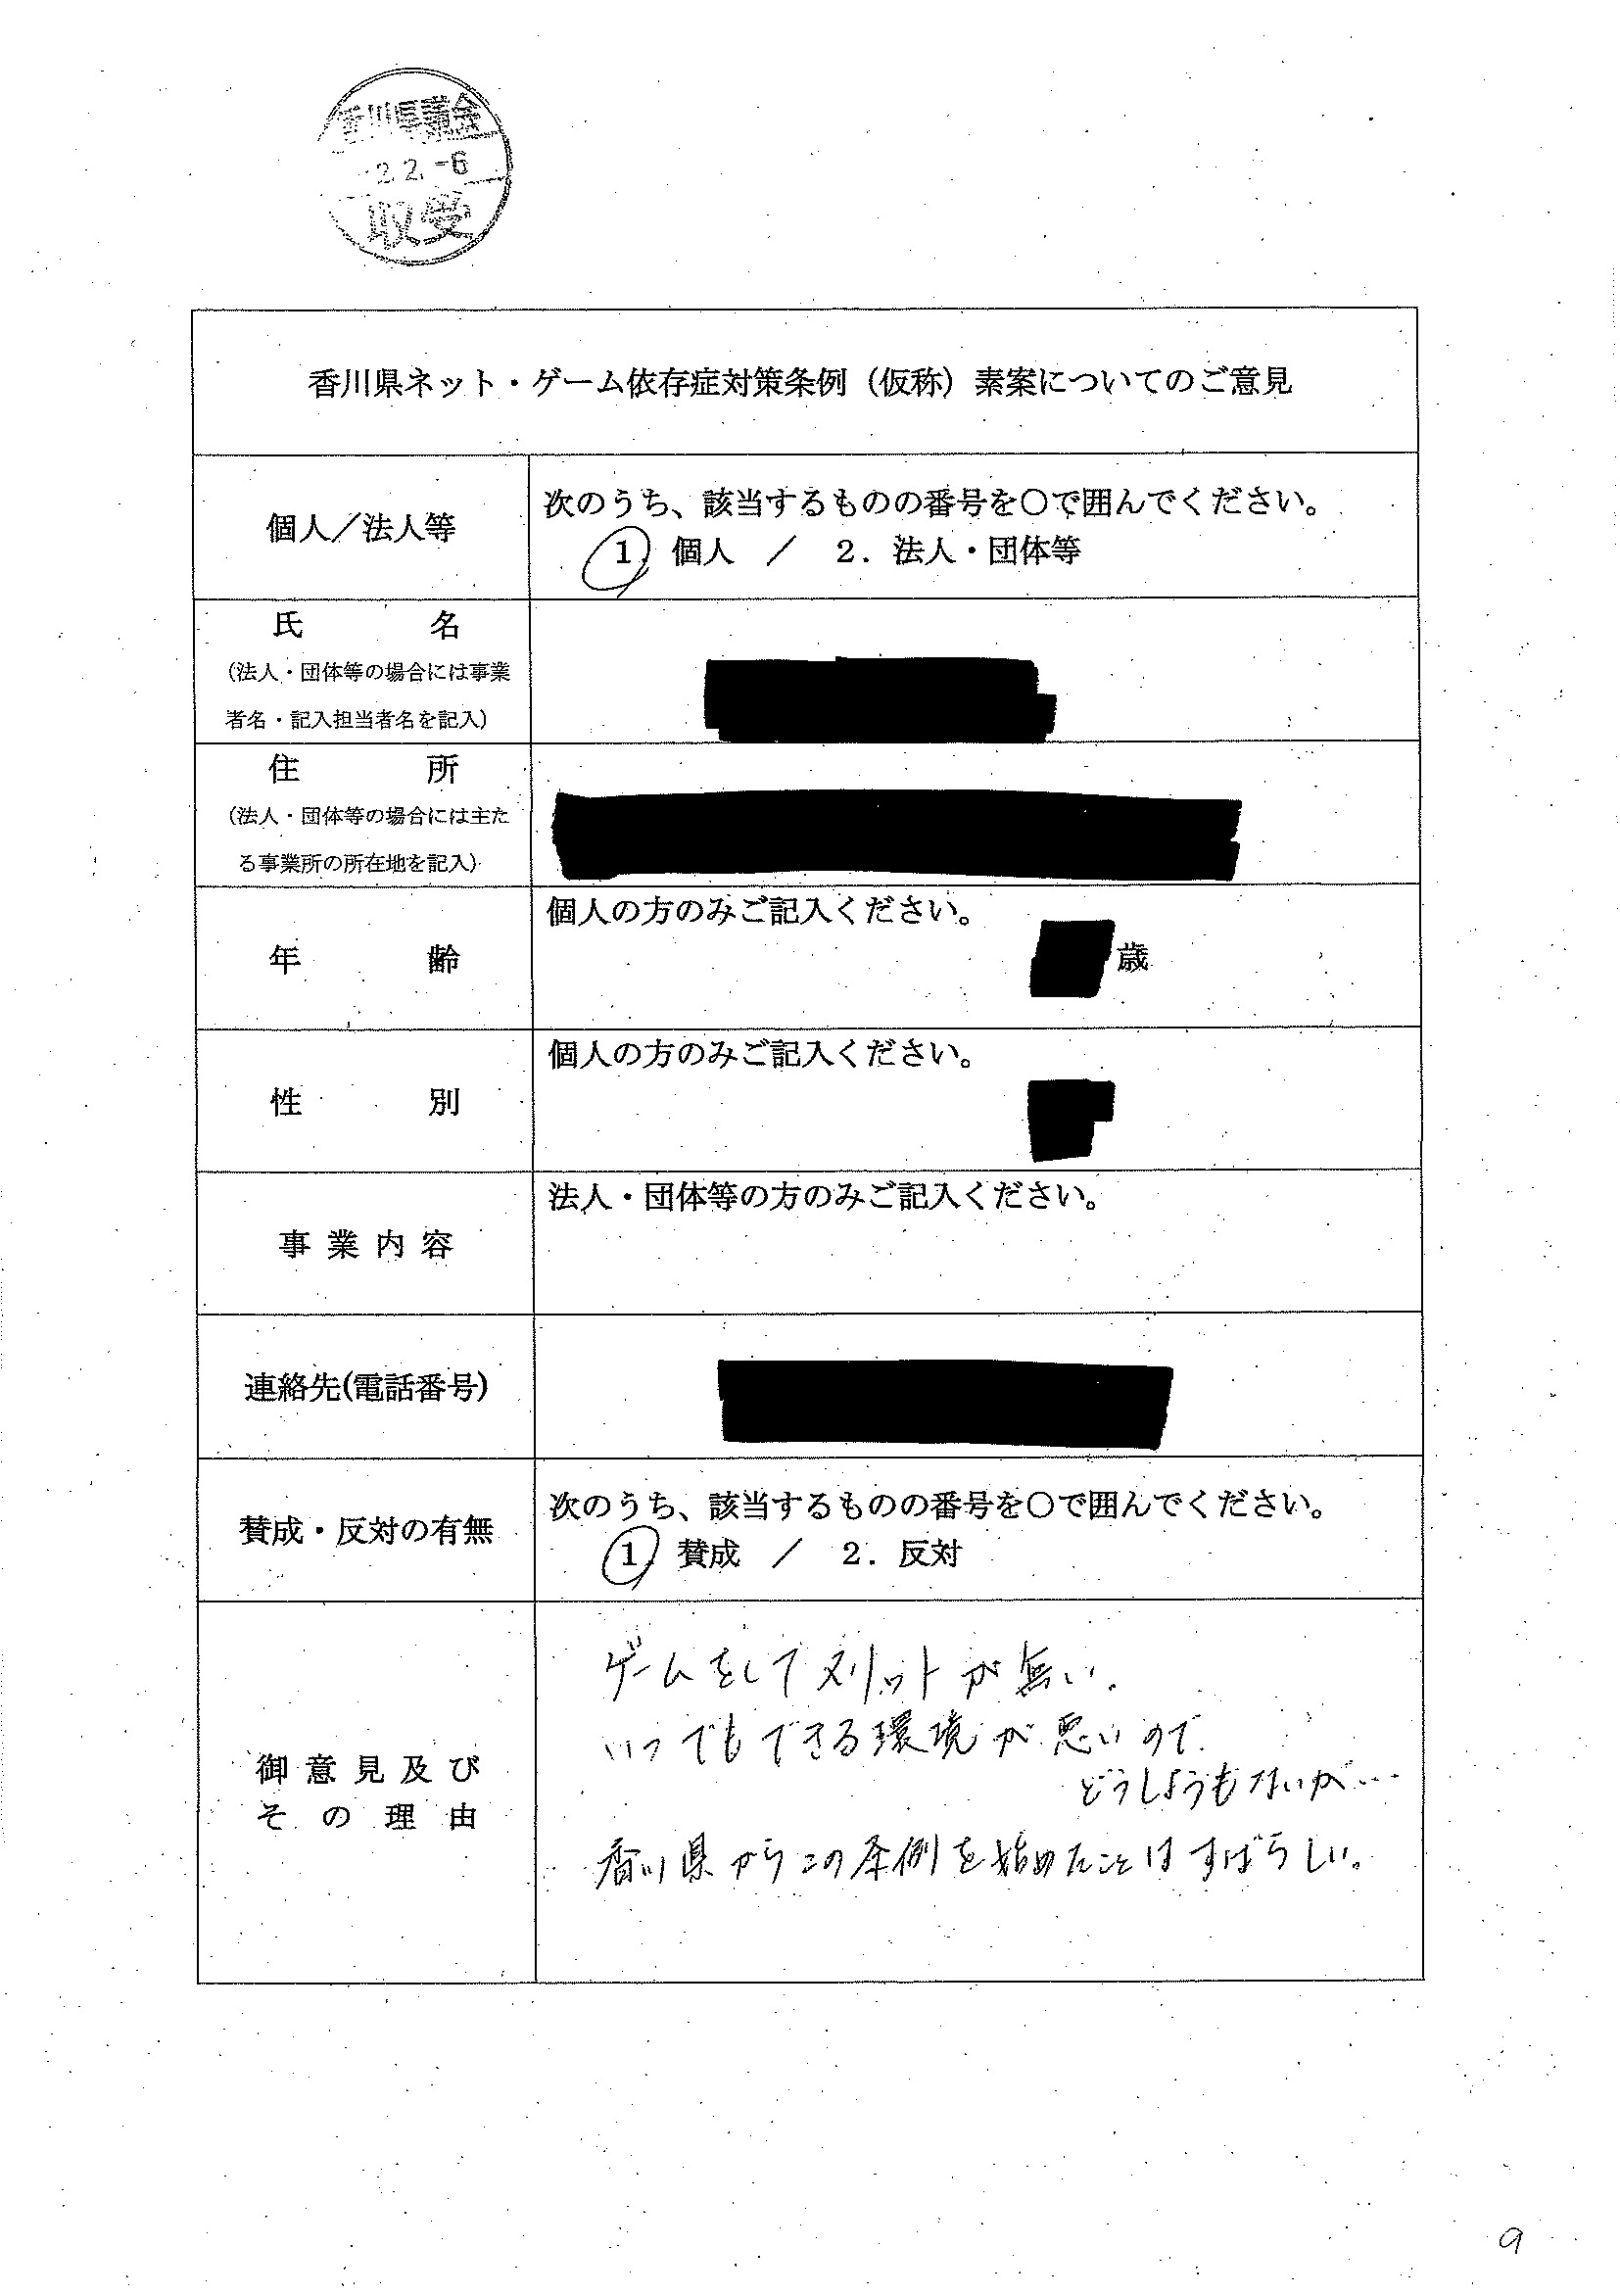 香川県議会
2.2.-6
収受
香川県ネット・ゲーム依存症対策条例（仮称）素案についてのご意見
個人／法人等
次のうち、該当するものの番号を〇で囲んでください。
1. 個人 ／ 2. 法人・団体等
氏名
（法人・団体等の場合には事業
者名・記入担当者名を記入）
住所
（法人・団体等の場合には主た
る事業所の所在地を記入）
年齢
個人の方のみご記入ください。
歳
性別
個人の方のみご記入ください。
事業内容
法人・団体等の方のみご記入ください。
連絡先(電話番号)
賛成・反対の有無
次のうち、該当するものの番号を〇で囲んでください。
1. 賛成 ／ 2. 反対
御意見及び
その理由
ゲームをしてメリットが無い。
いつでもできる環境が悪いので
どうしようもないが…
香川県からこの条例を始めたことはすばらしい。
9